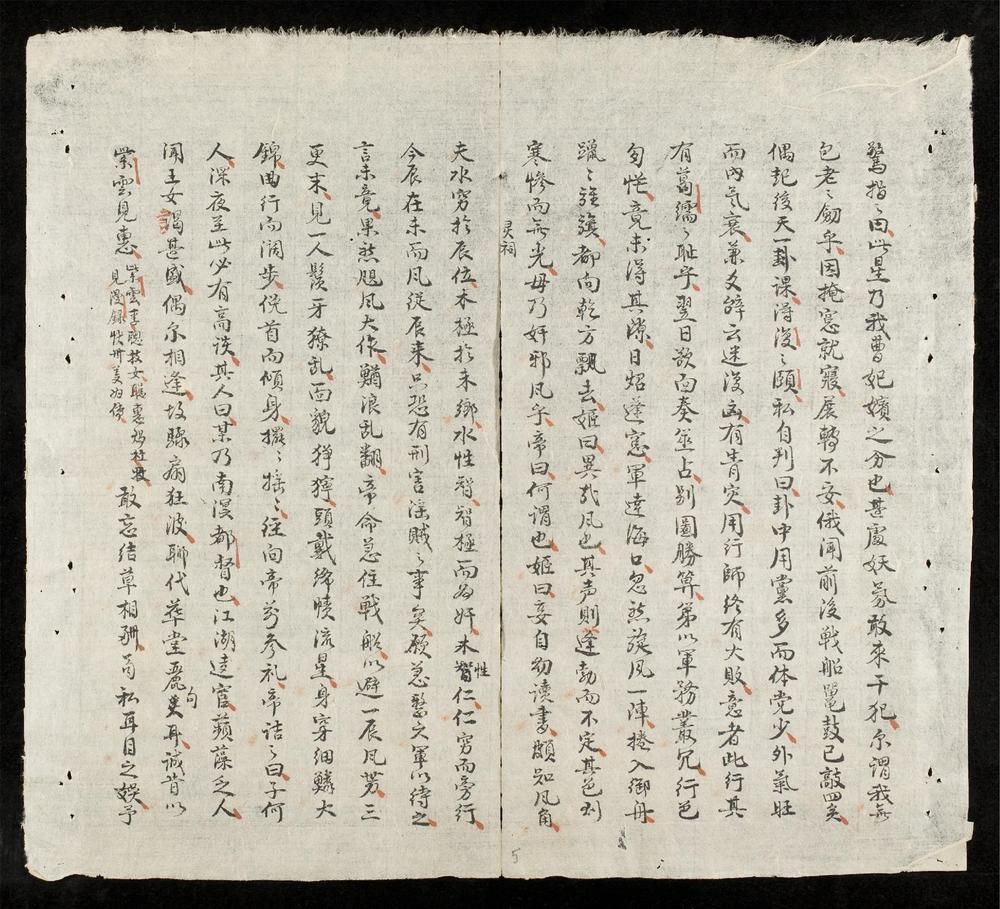 驚指〻曰此星乃我曹妃嬪之分也甚處妖氛敢來干犯尔謂我無
包老〻劎乎因掩窓就寢展轉不安俄聞前後戰船鼍鼓已敲四矣
偶起後天一卦課得復〻頤私自判曰卦中用党多而体党少外氣旺
而內氣衰兼爻辞云迷復凶有眚灾用行師終有大敗意者此行其
有葛繻〻耻乎翌日欲面奏筮占別圖勝算第以軍務叢冗行色
匆忙竟未得其隙日炤蓬窓軍達海口忽然旋風一陣捲入御舟
獵〻旌旗都向乾方飄去姬曰異哉風也其声則蓬勃而不定其色則
寒慘而無光毋乃奸邪風乎帝曰何謂也姬曰妾自幼读書頗知風角
灵祠
夫水窮於辰位木極於未鄉水性智智極而为奸木性仁仁窮而旁行
今辰在未而風從辰来只恐有刑害滛賊〻事矣願急整六軍以待之
言未竟果然飓風大作鱗浪乱翻帝命急住戰船以避一辰風势三
更末見一人鬚牙獠乱面貌狰獰頭戴絳幘流星身穿细鱗大
錦曲行而濶步俛首而傾身擺〻摇〻徃向帝前参礼帝诘〻曰子何
人深夜至此必有高谈其人曰某乃南溟都督也江湖遠宦蘋藻乏人
聞王女謁甚盛偶尔相逢故驟扇狂波聊代華堂麗句耳诚肯以
紫雲見惠 紫雲李愿妓女聪惠
見漫録
敢忘结草相酬肯私耳目之娱予
5